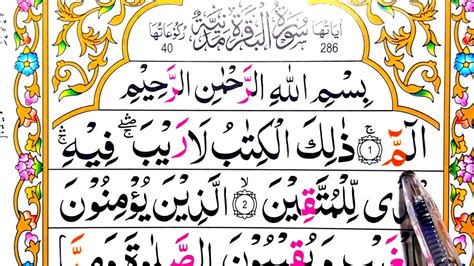 اٰيَاتُهَا 286 سُوْرَةُ الْبَقَرَةِ مَدَنِيَّةٌ رُكُوْعَاتُهَا 40
بِسْمِ اللّٰهِ الرَّحْمٰنِ الرَّحِيْمِ
الٓمّٓ ۚ ١ ذٰلِكَ الْكِتٰبُ لَا رَيْبَ ۛۖ فِيْهِ ۛۚ
لِّلْمُتَّقِيْنَ ۙ 2 الَّذِيْنَ يُؤْمِنُوْنَ
وَيُقِيْمُوْنَ الصَّلٰوةَ